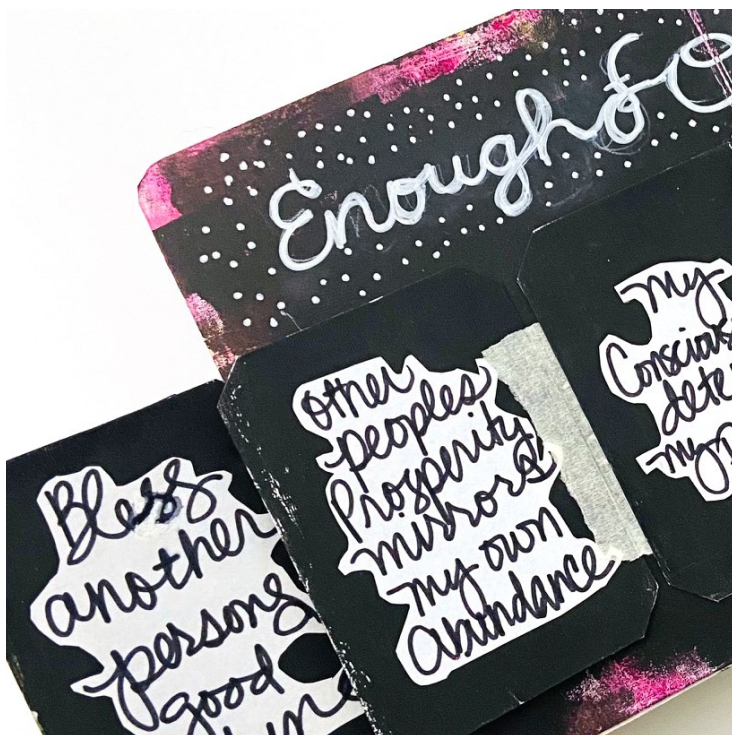 Enough &
Bless
another
persons
good
other
peoples
Prosperity
mirrors
my own
abundance
My
my